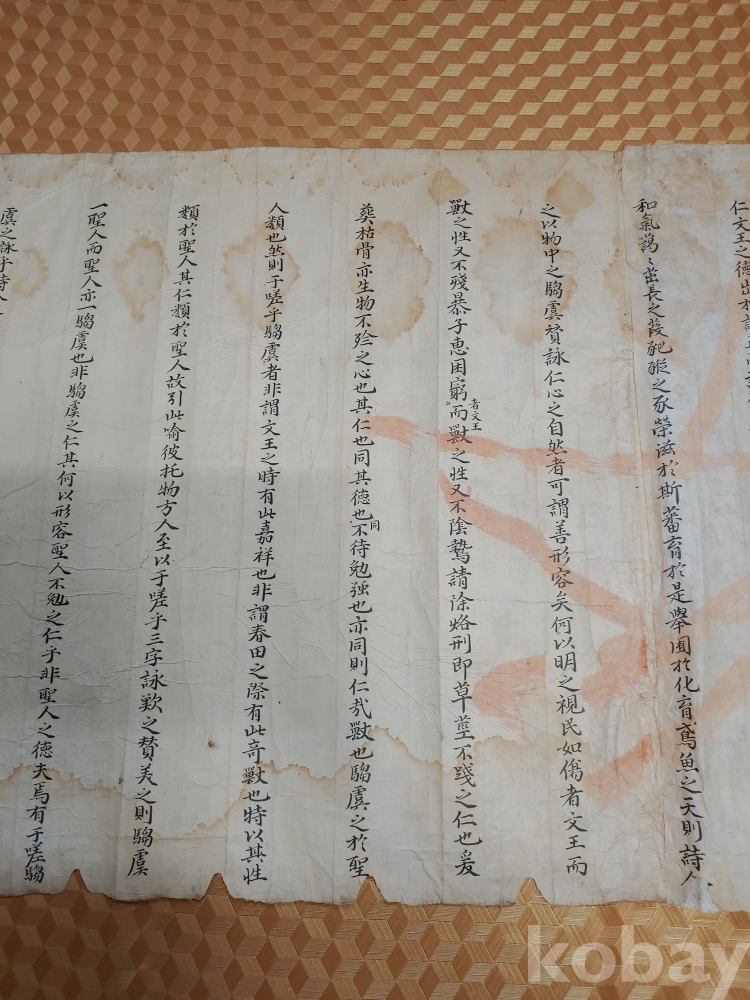 仁文王之德出於
和氣藹〻茁長之葭豝豵之豕榮滋於斯蕃育於是舉囿於化育鳶魚之天則詩人
之以物中之騶虞賁詠仁心之自然者可謂善形容矣何以明之視民如傷者文王而
獸之性又不殘暴子惠困窮者文王而獸之性又不陰鷙請除烙刑即草莖不踐之仁也爰
葬枯骨亦生物不殄之心也其仁也同其德也同不待勉強也亦同則仁哉獸也騶虞之於聖
人類也然則于嗟乎騶虞者非謂文王之時有此嘉祥也非謂春田之際有此奇獸也特以其性
類於聖人其仁類於聖人故引此喻彼托物方人至以于嗟乎三字詠歎之贊美之則騶虞
一聖人而聖人亦一騶虞也非騶虞之仁其何以形容聖人不勉之仁乎非聖人之德夫焉有于嗟騶
虞之詠乎詩人
kobay